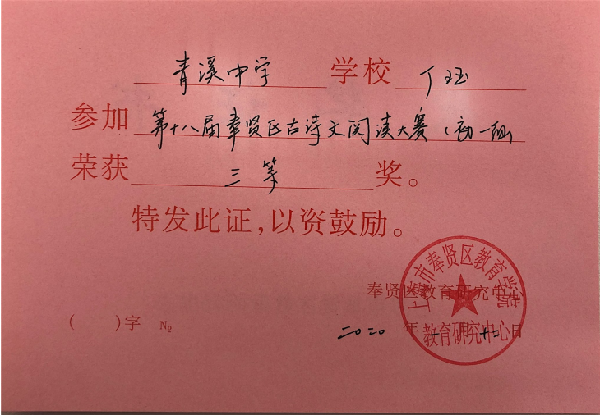 青溪中学 学校 丁玉
参加 第十八届奉贤区古诗文阅读大赛(初一组
荣获 三等 奖。
特发此证,以资鼓励。
奉贤区教育研究中心
( )字 № 二〇二〇 年 月 十二 日
上海市奉贤区教育学院
教育研究中心